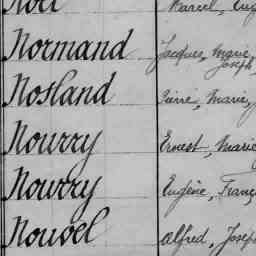 Noël Marcel, Eug
Normand Jacques, Marie, Joseph,
Nosland Pierre, Marie,
Nourry Ernest, Marie
Nourry Eugène, Franç
Nouvel Alfred, Joseph